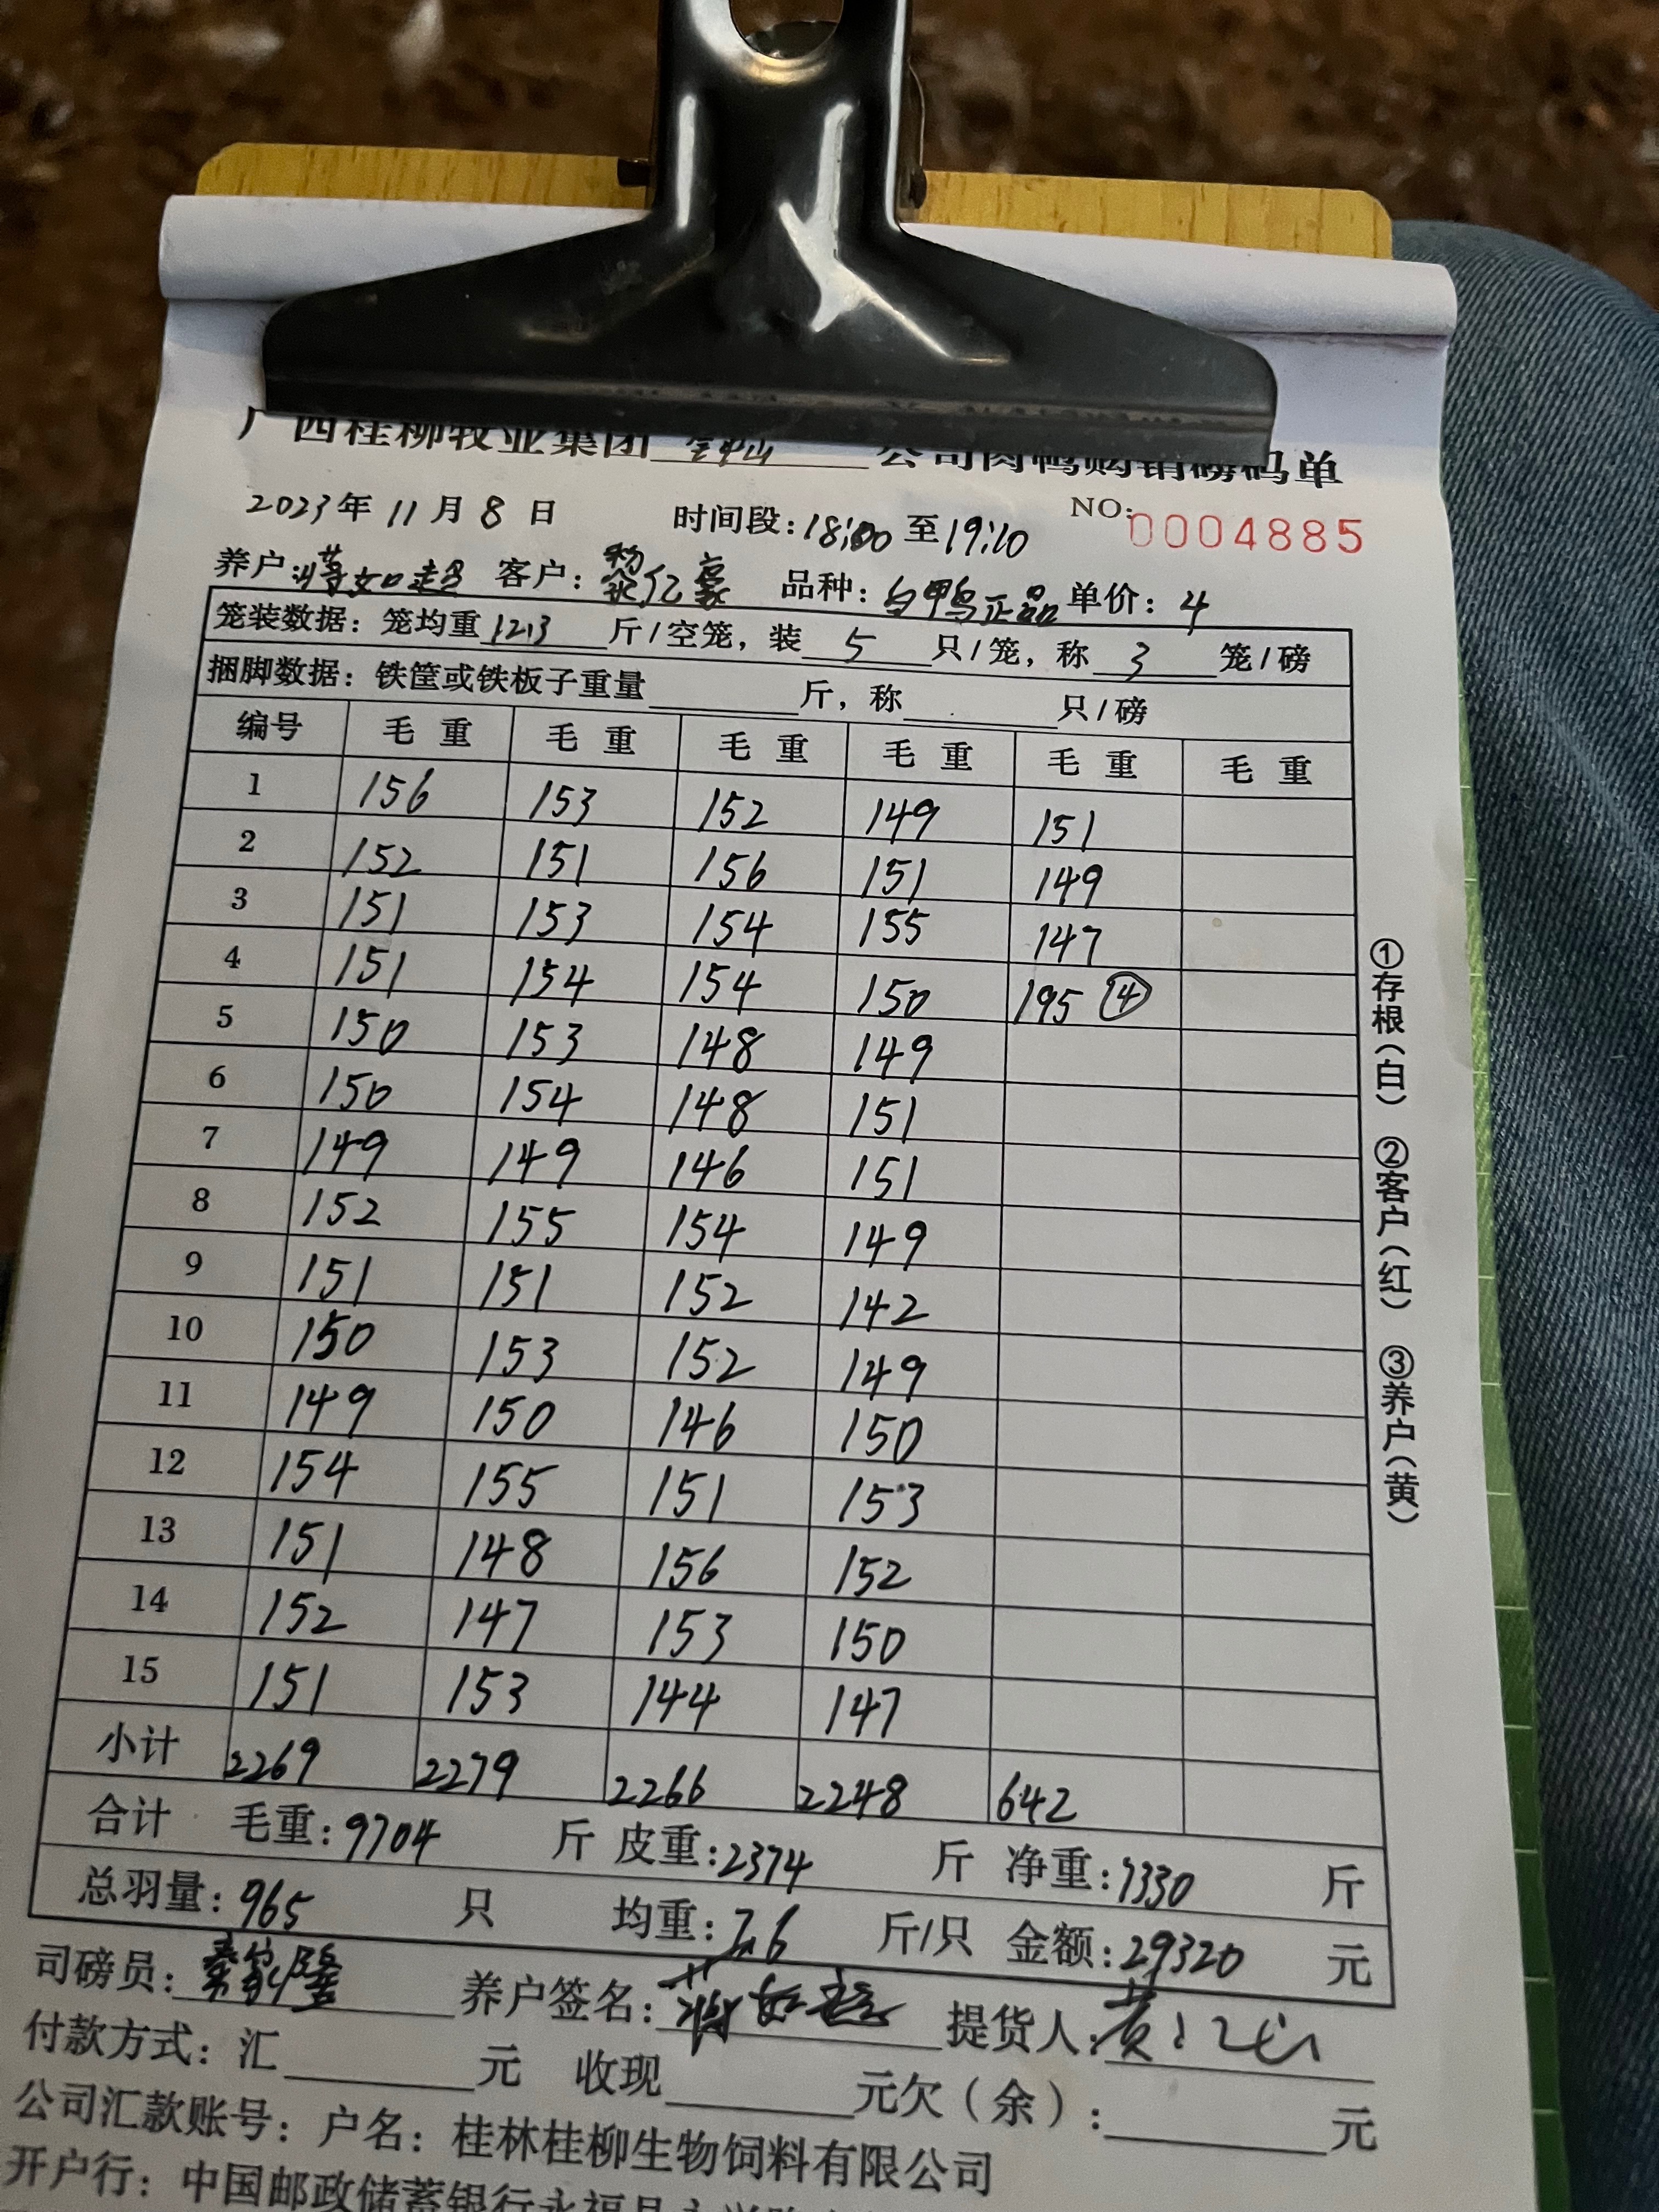 广西桂柳牧业集团 金中山 公司肉鸭购销磅码单
2023年 11月 8日 时间段:18:00至19:10 NO:0004885
养户:蒋如超 客户:黎亿豪 品种:白鸭正品 单价:4
笼装数据:笼均重 12.3 斤/空笼,装 5 只/笼,称 3 笼/磅
捆脚数据:铁筐或铁板子重量 斤,称 只/磅
编号 毛重 毛重 毛重 毛重 毛重 毛重
1 156 153 152 149 151
2 152 151 156 151 149
3 151 153 154 155 147
4 151 154 154 150 195 ④
5 150 153 148 149
6 150 154 148 151
7 149 149 146 151
8 152 155 154 149
9 151 151 152 142
10 150 153 152 149
11 149 150 146 150
12 154 155 151 153
13 151 148 156 152
14 152 147 153 150
15 151 153 144 147
小计 2269 2279 2266 2248 642
合计 毛重:9704 斤 皮重:2374 斤 净重:7330 斤
总羽量:965 只 均重:7.6 斤/只 金额:29320 元
司磅员: 养户签名:蒋如超 提货人:
付款方式:汇 元 收现 元欠(余): 元
公司汇款账号:户名:桂林桂柳生物饲料有限公司
开户行:中国邮政储蓄银行永福县
①存根(白) ②客户(红) ③养户(黄)